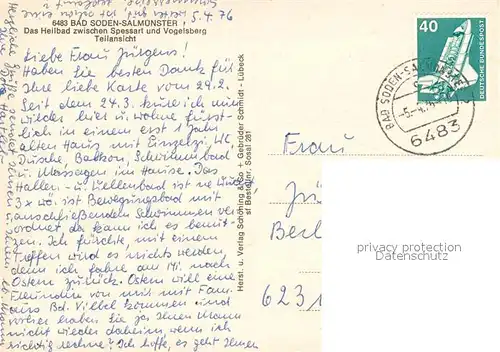 5.4.76
6483 BAD SODEN-SALMÜNSTER
Das Heilbad zwischen Spessart und Vogelsberg
Teilansicht
Liebe Frau Jürgens!
Haben Sie besten Dank für
Ihre liebe Karte vom 29.2.
Seit dem 24.3. kure ich nun
wieder hier u. wohne fürst-
lich in einem erst 1 Jahr
alten Haus mit Einzelzi, WC,
Dusche, Balkon, Schwimmbad
u. Massagen im Hause. Das
Hallen- u. Wellenbad ist nie
3x wö. ist Bewegungsbad mit
anschließenden Schwimmen ver-
ordnet da kann ich es benut-
zen. Ich fürchte, mit einem
Treffen wird es nichts werden,
denn ich fahre am Mi. nach
Ostern zurück. Spessart will eine
Freundin von mir mit Fam.
aus Bd. Vilbel kommen und
vorher haben Sie ja Ihren Mann
nicht wieder daheim, wenn ich
richtig rechne? Ich hoffe, es geht Ihnen
Herst. u. Verlag Schöning & Co + Gebrüder Schmidt - Lübeck
st Bestellnr. Sosal 281
40
DEUTSCHE BUNDESPOST
BAD SODEN-SALMÜNSTER
6483
Frau
Jü
Berl
623
privacy protection
www.oldthing.de